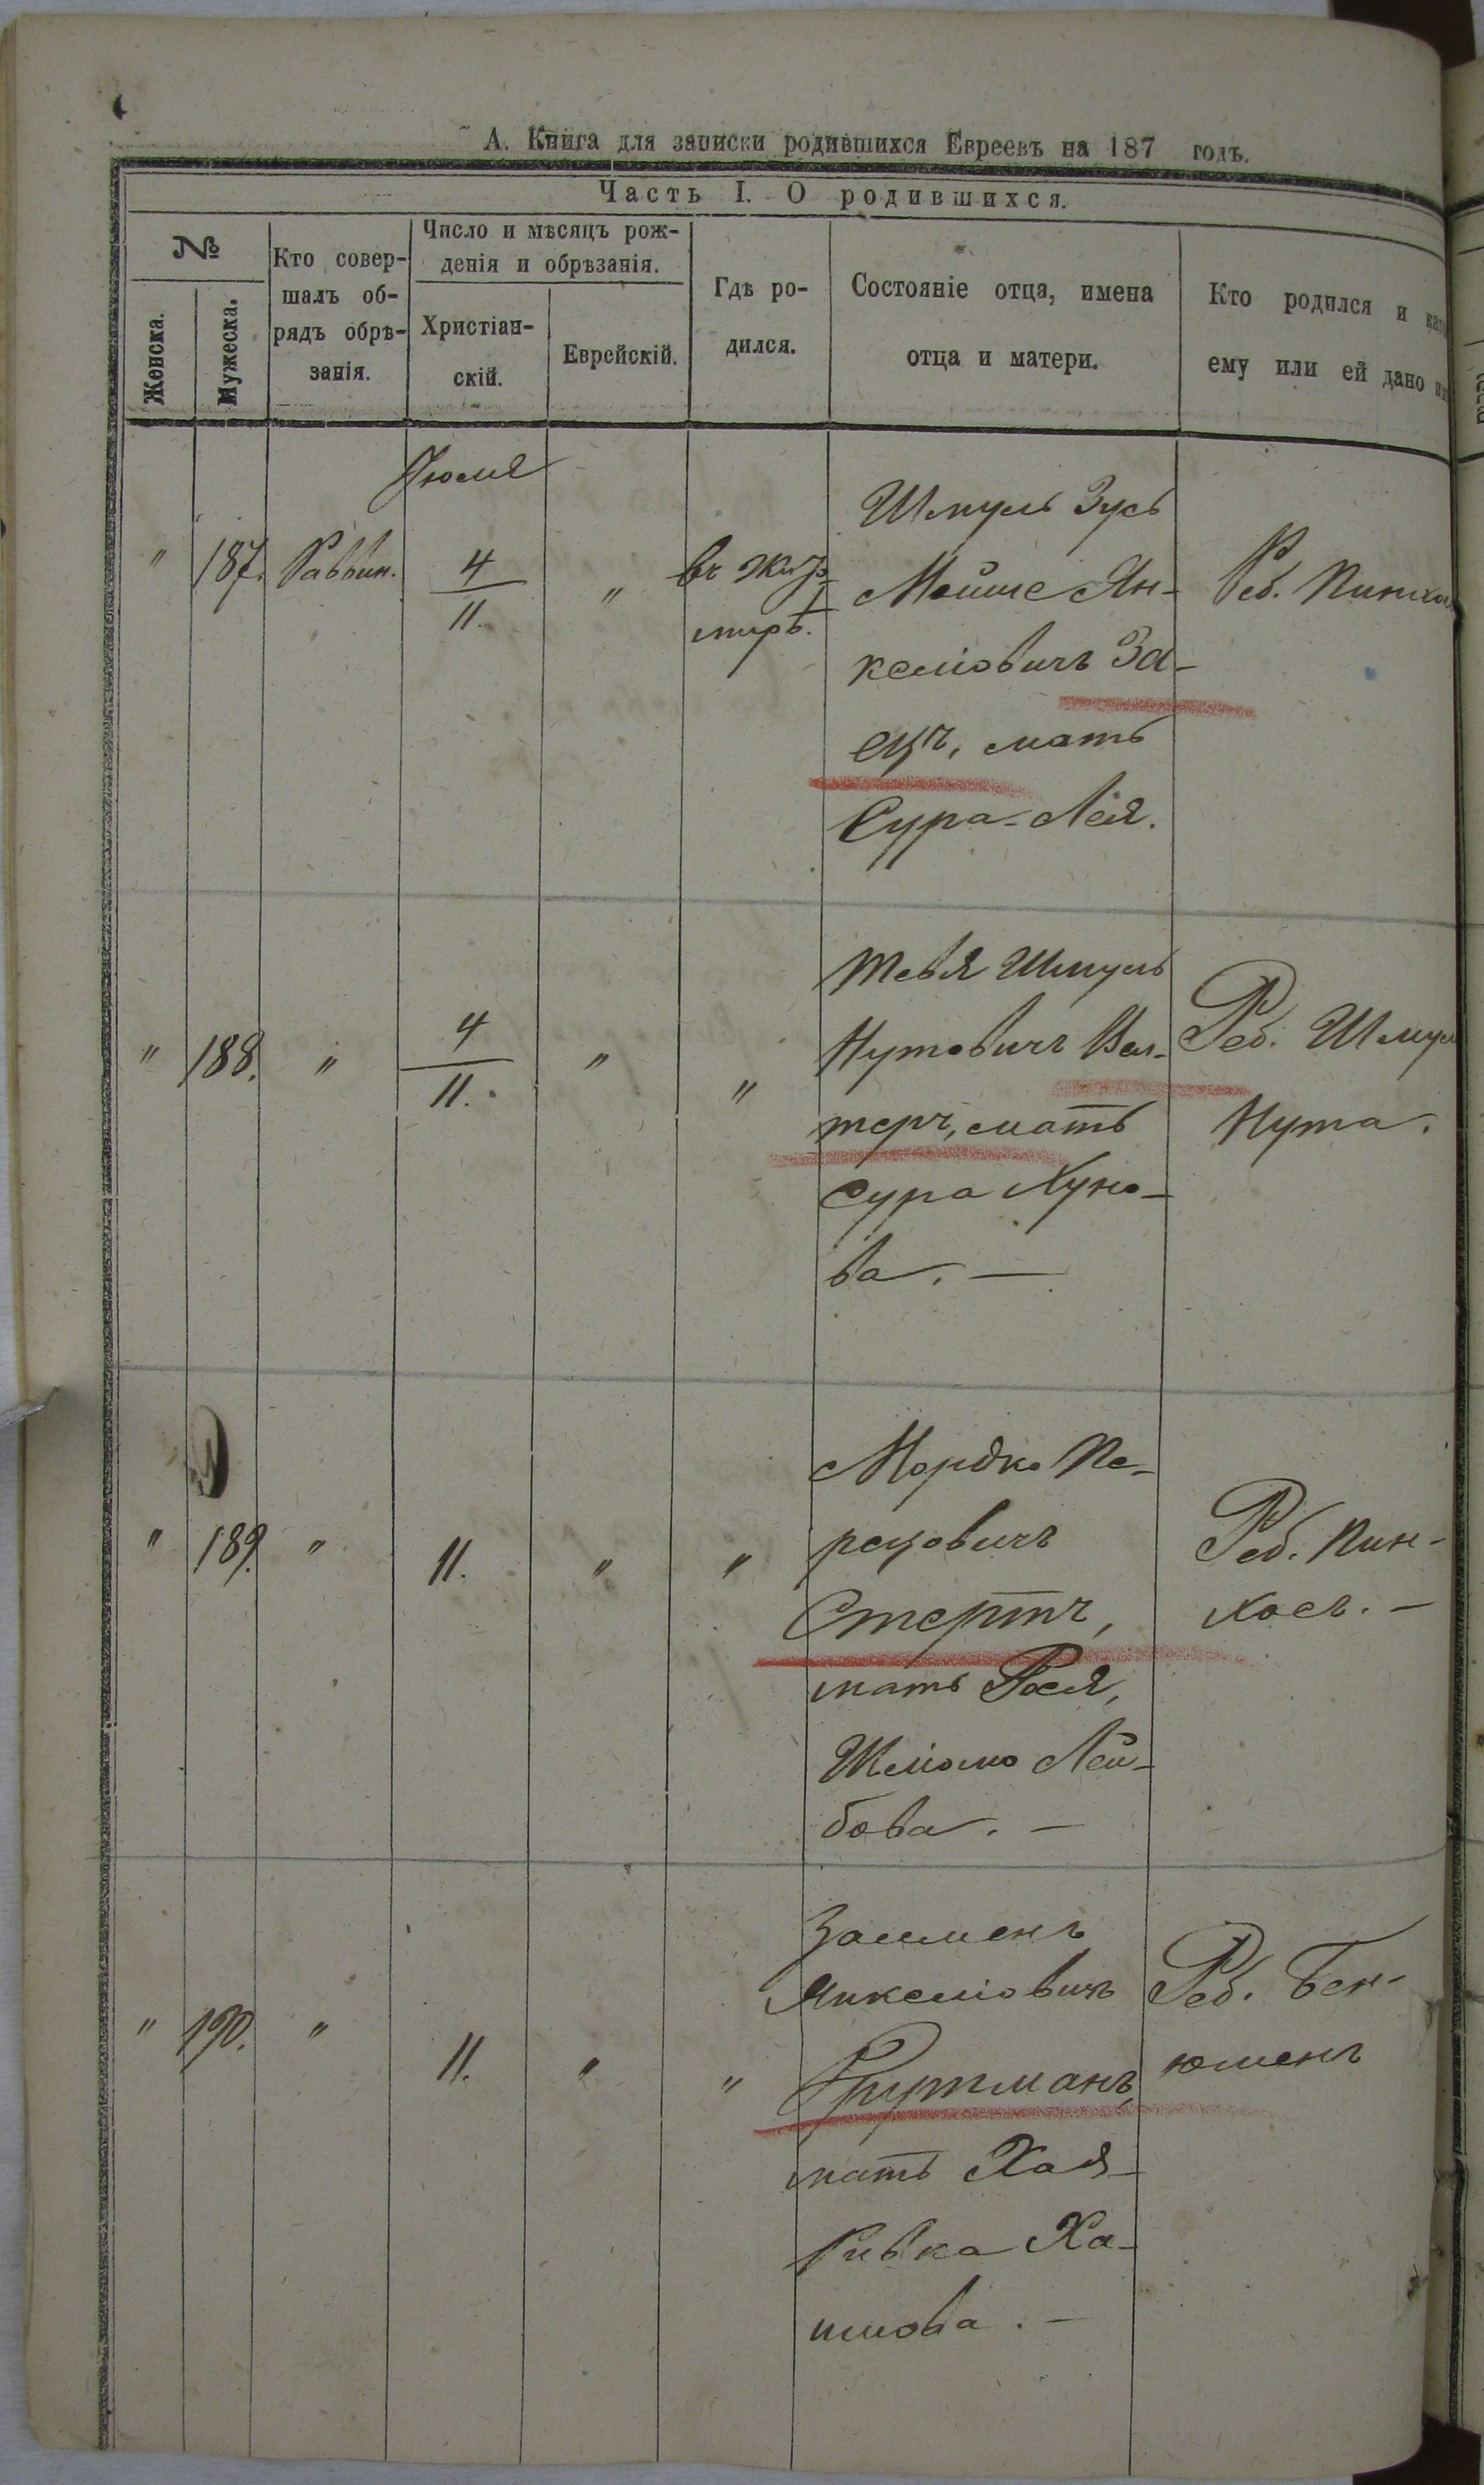 А. Книга для записки родившихся Евреевъ на 187 годъ.
Часть I. О родившихся.
№
Женска.
Мужеска.
Кто совер-
шалъ об-
рядъ обрѣ-
занія.
Число и мѣсяцъ рож-
денія и обрѣзанія.
Христіан-
скій.
Еврейскій.
Гдѣ ро-
дился.
Состояніе отца, имена
отца и матери.
Кто родился и
ему или ей дано
" 187. Раввин.
4
11.
"
въ Жито
мирѣ.
Шмуль Зусь
Мойше Ян-
келіовичъ За-
ецъ, мать
Сура-Лея.
Реб. Пинха
" 188. "
4
11.
" "
Тевя Шмуль
Нутовичъ Вал-
теръ, мать
Сура Хуно-
ва. —
Реб. Шмул
Нута.
" 189. " 11. " "
Мордко Пе-
рецовичъ
Стертъ,
мать Рося,
Шліомо Лей-
бова. —
Реб. Пин-
хосъ. —
" 190. " 11. " "
Залменъ
Янкеліовичъ
Трутманъ,
мать Хая-
Ривка Ха-
имова. —
Реб. Бен-
юменъ